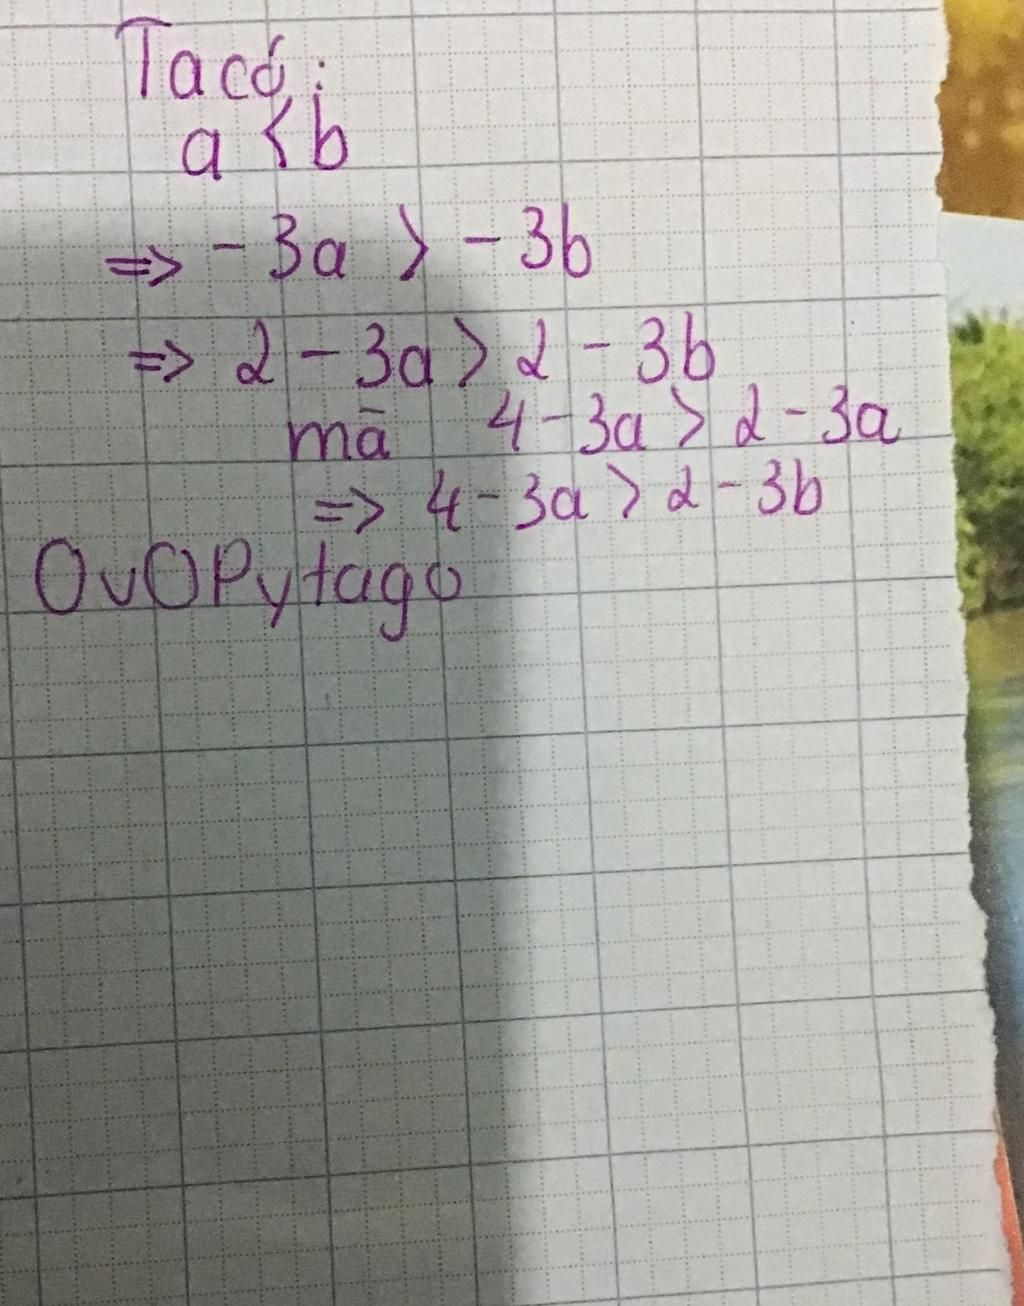 Ta có:
a < b
=> -3a > -3b
=> 2 - 3a > 2 - 3b
mà 4 - 3a > 2 - 3a
=> 4 - 3a > 2 - 3b
OvOPytago